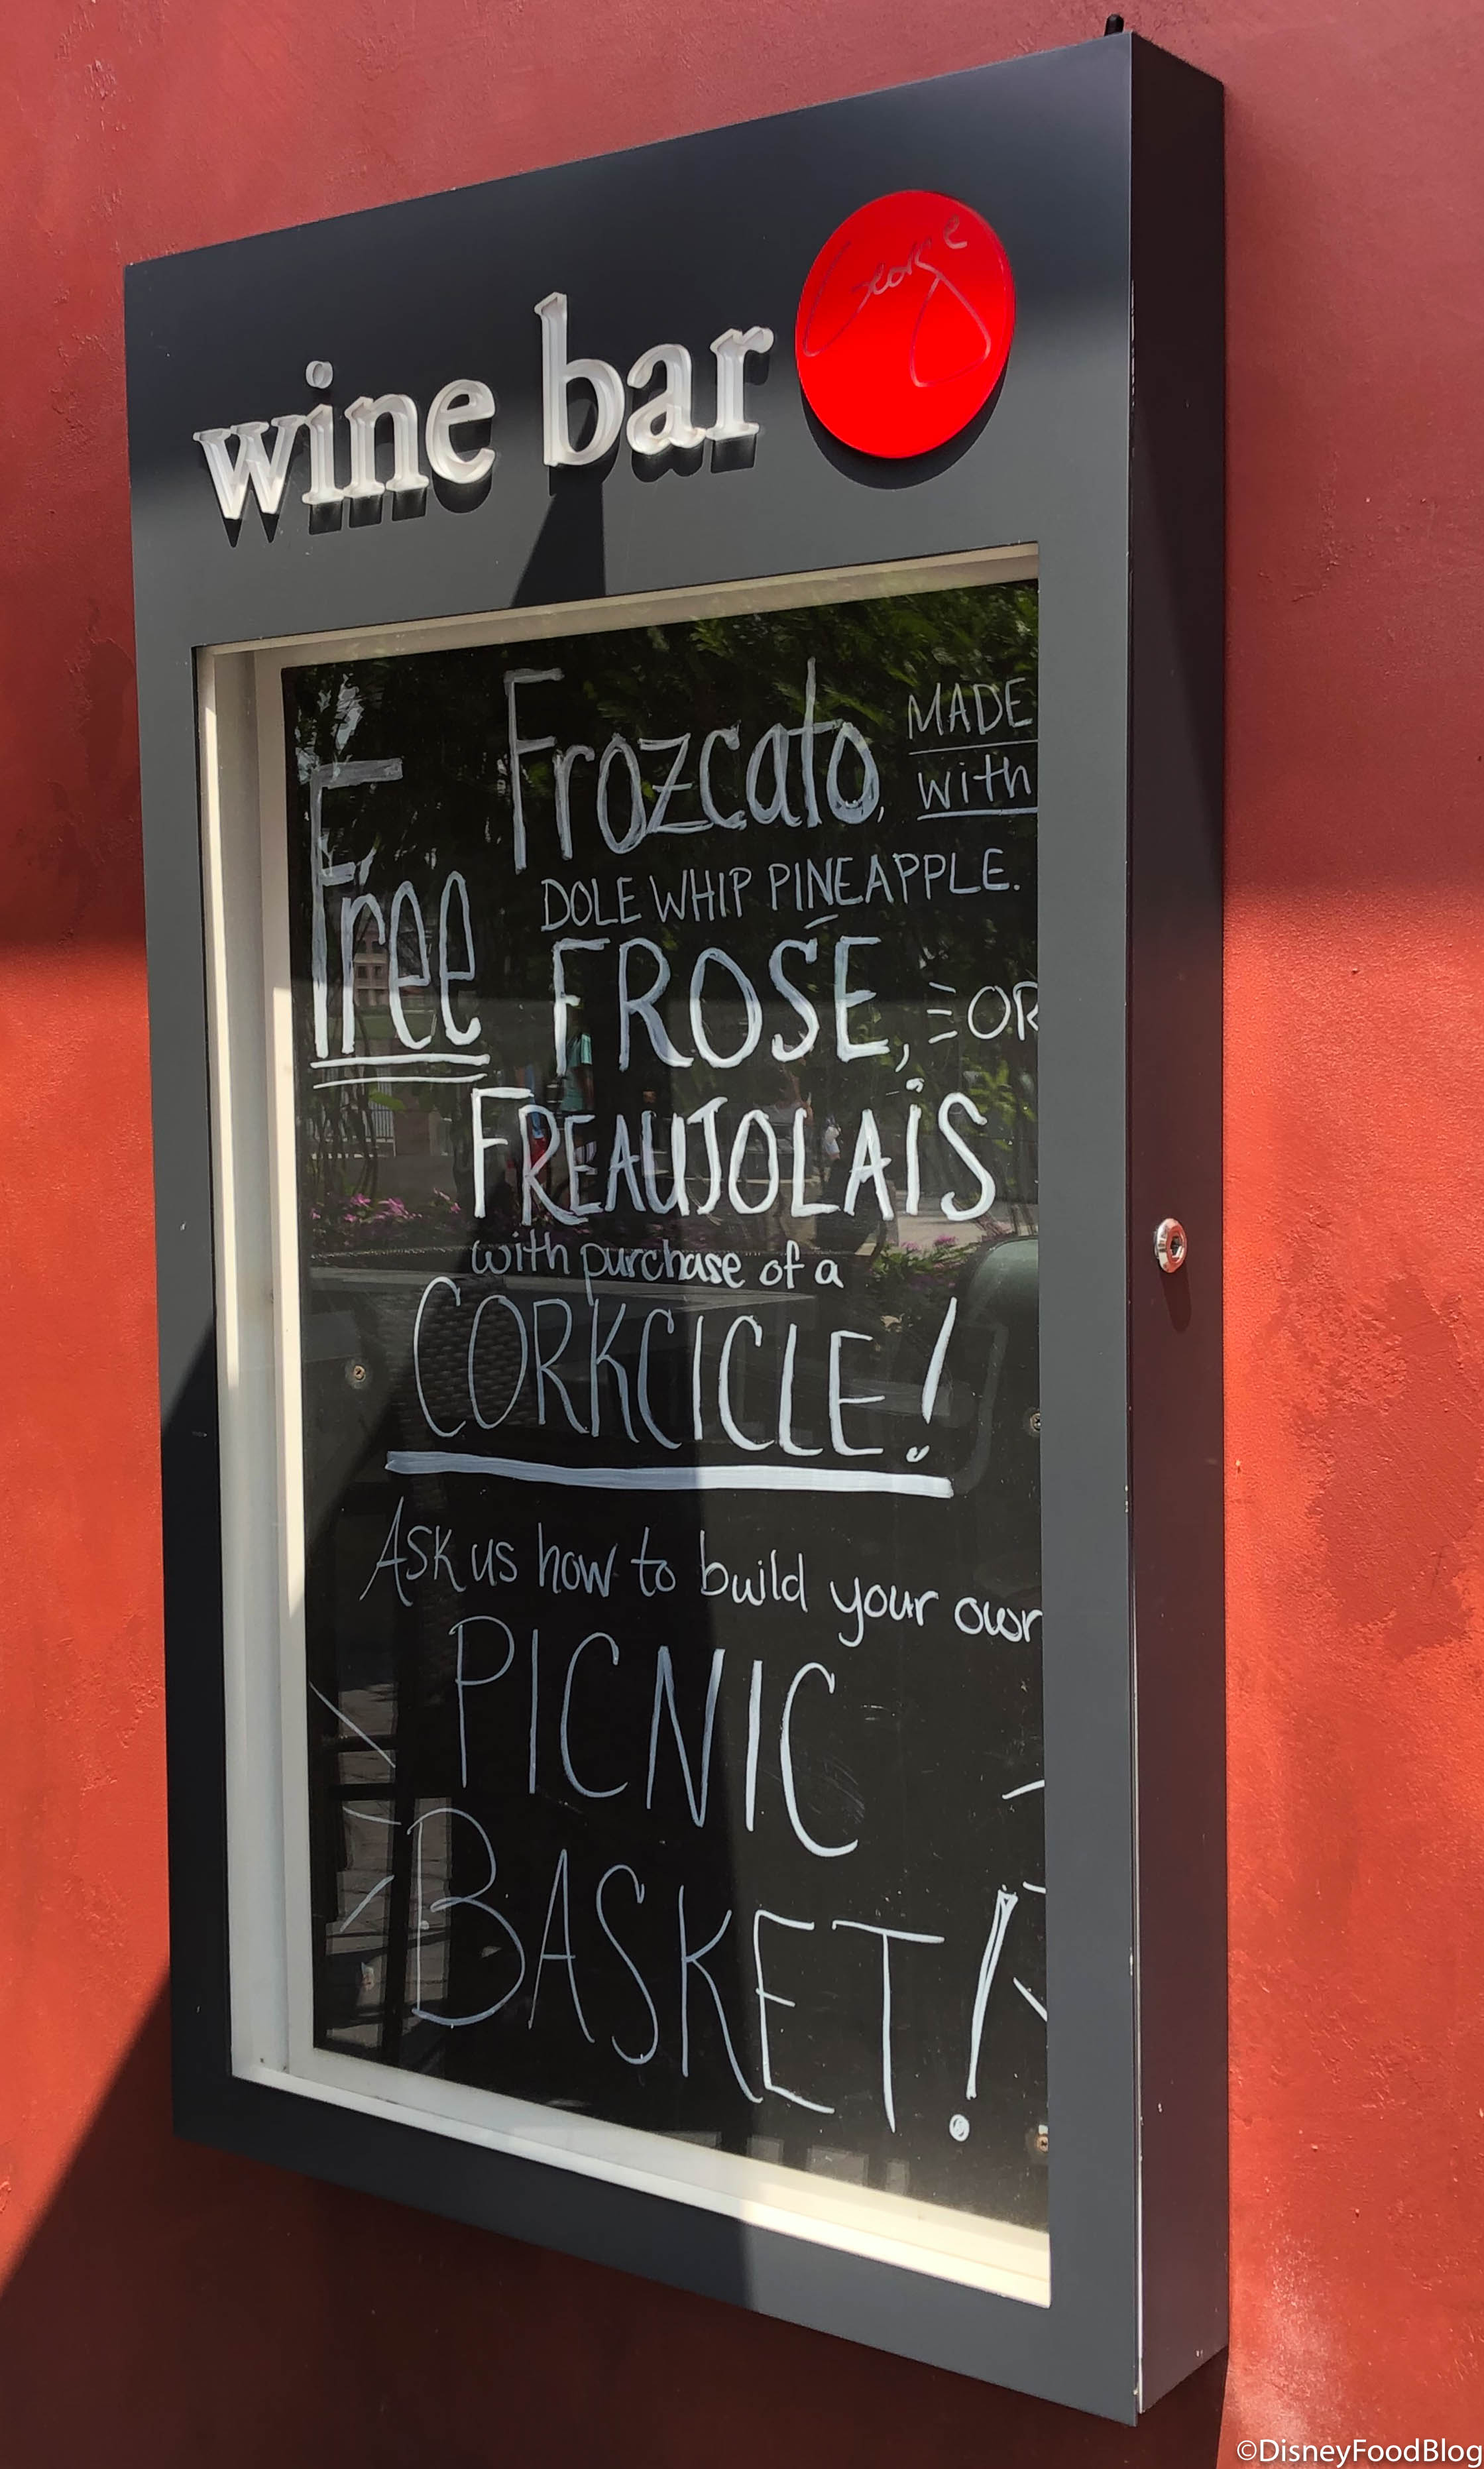 wine bar George
Frozcato, MADE with
Free
DOLE WHIP PINEAPPLE.
FROSÉ, OR
FREAUJOLAIS
with purchase of a
CORKCICLE!
Ask us how to build your own
PICNIC
BASKET!
©DisneyFoodBlog